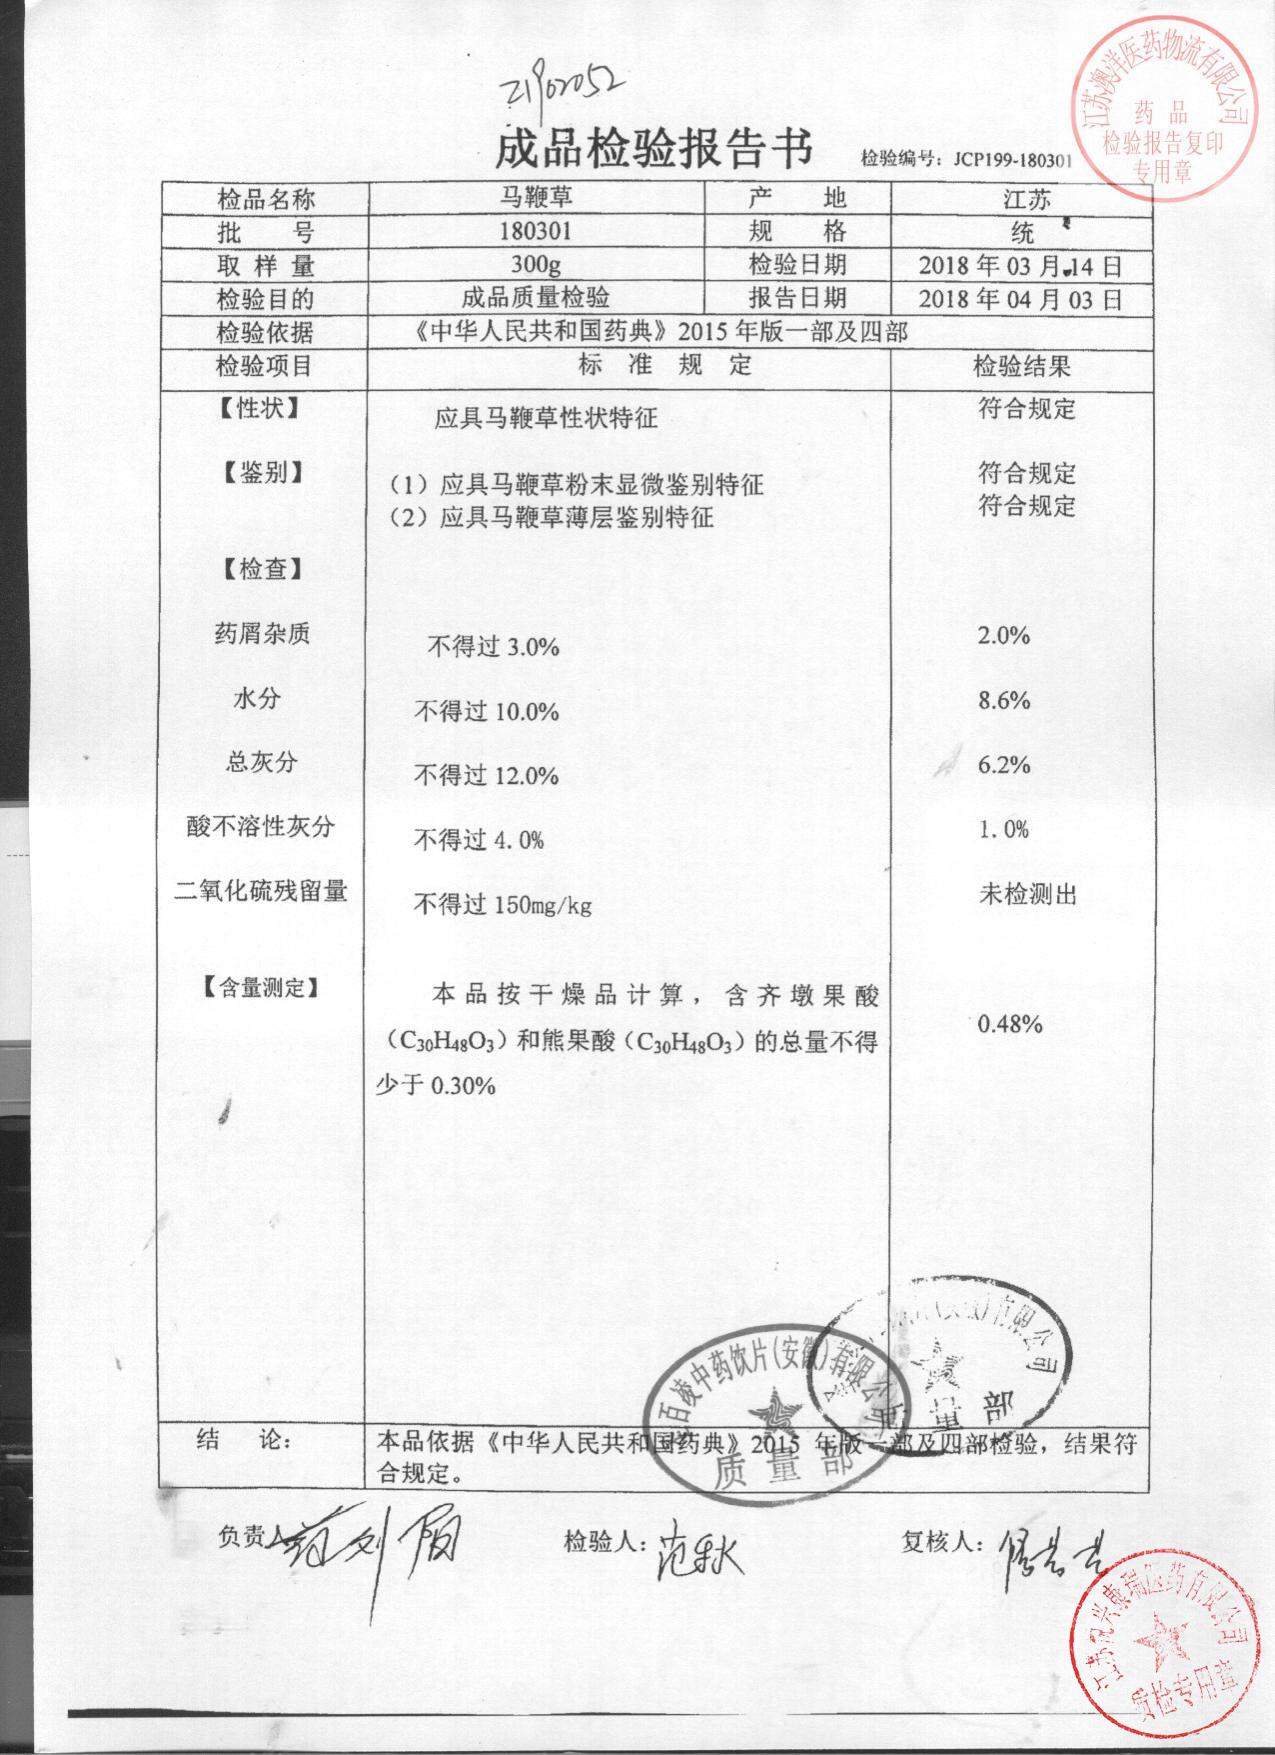 Z1902052
江苏澳洋医药物流有限公司
药品
检验报告复印
专用章
成品检验报告书
检验编号：JCP199-180301
检品名称 马鞭草 产 地 江苏
批 号 180301 规 格 统
取 样 量 300g 检验日期 2018 年 03 月 14 日
检验目的 成品质量检验 报告日期 2018 年 04 月 03 日
检验依据 《中华人民共和国药典》2015 年版一部及四部
检验项目 标 准 规 定 检验结果
【性状】 应具马鞭草性状特征 符合规定
【鉴别】 （1）应具马鞭草粉末显微鉴别特征 符合规定
（2）应具马鞭草薄层鉴别特征 符合规定
【检查】
药屑杂质 不得过 3.0% 2.0%
水分 不得过 10.0% 8.6%
总灰分 不得过 12.0% 6.2%
酸不溶性灰分 不得过 4.0% 1.0%
二氧化硫残留量 不得过 150mg/kg 未检测出
【含量测定】 本品按干燥品计算，含齐墩果酸
（C30H48O3）和熊果酸（C30H48O3）的总量不得 0.48%
少于 0.30%
百凌中药饮片(安徽)有限公司
质量部
有限公司
量部
结 论： 本品依据《中华人民共和国药典》2015 年版一部及四部检验，结果符
合规定。
负责人
检验人：范秋
复核人：
康瑞医药有限公司
质检专用章